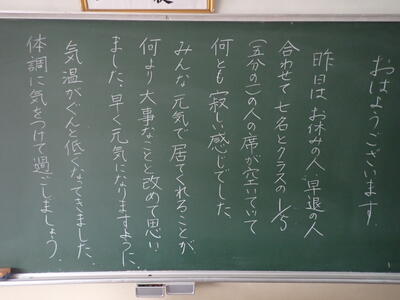 おはようございます。
昨日は、お休みの人、早退の人
合わせて七名とクラスの1/5
(五分の一)の人の席が空いていて
何とも寂しい感じでした。
みんな元気で居てくれることが
何より大事なことと改めて思い
ました。早く元気になりますように。
気温がぐんと低くなってきました。
体調に気をつけて過ごしましょう。